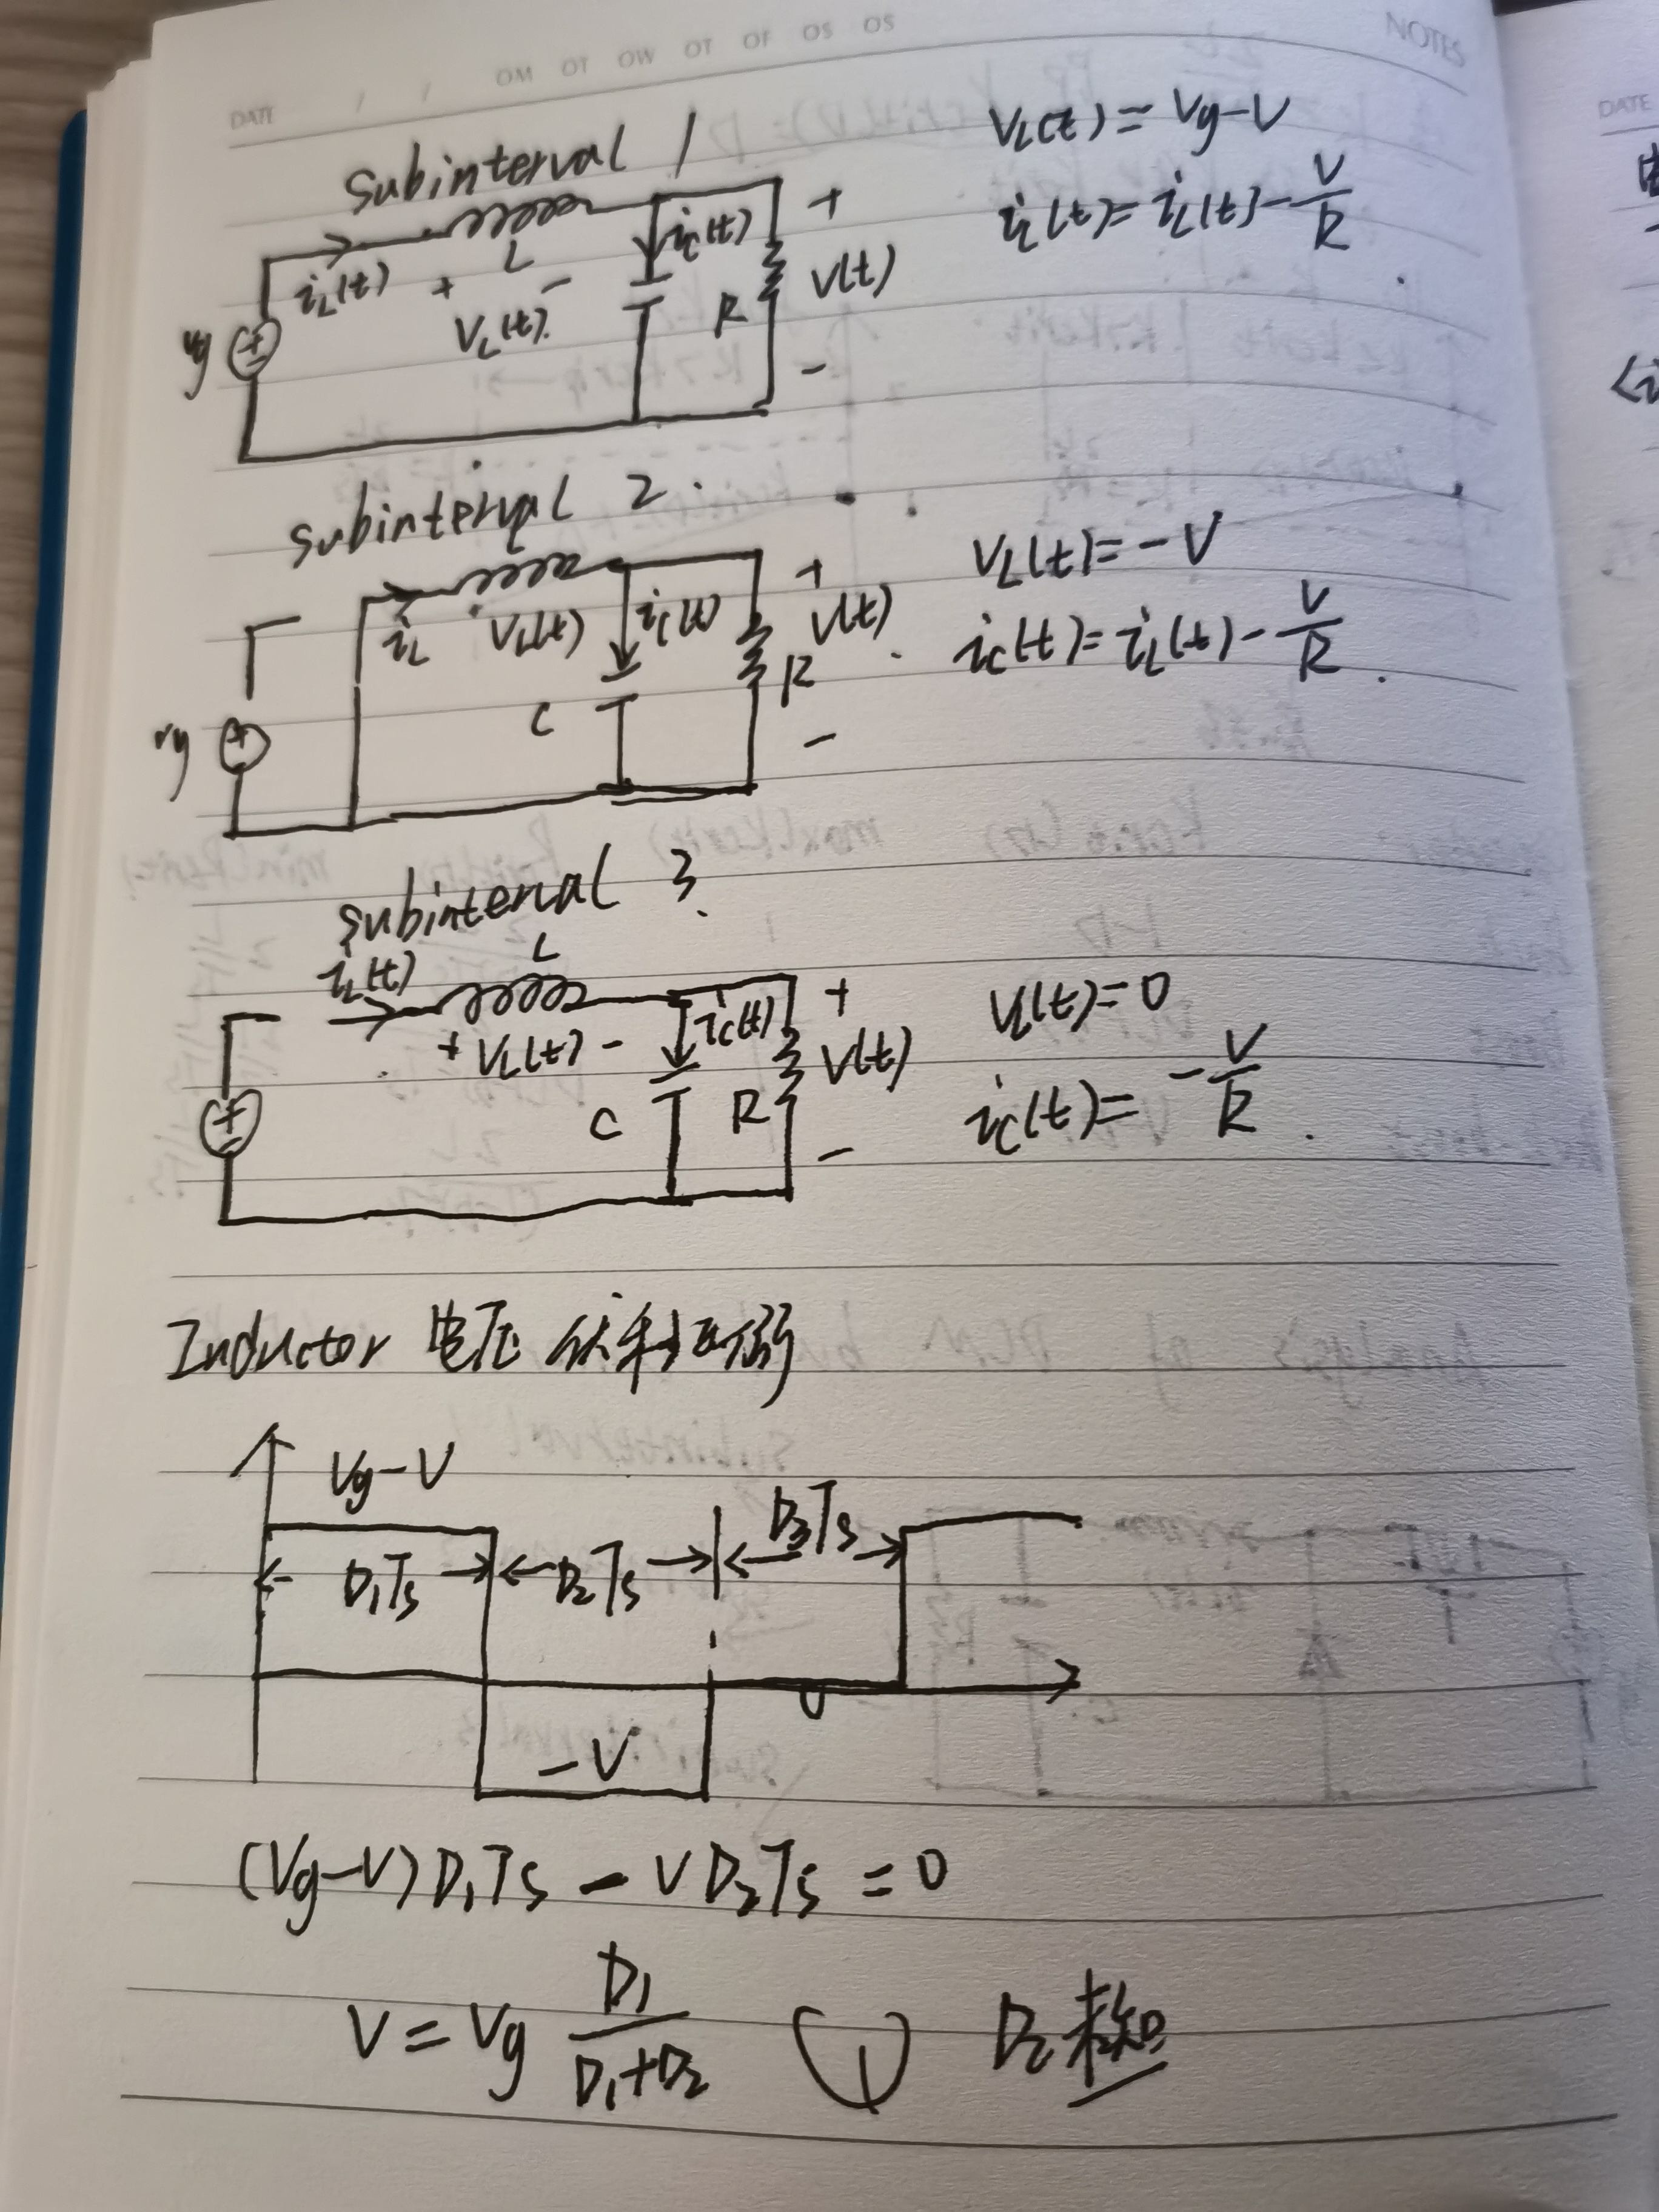 DATE / / OM OT OW OT OF OS OS NOTES
subinterval 1
VL(t) = Vg-V
iL(t) + L - VL(t) ic(t) R + V(t) - Vg
ic(t) = iL(t) - V/R
subinterval 2.
VL(t) = -V
iL VL(t) ic(t) C R + V(t) - Vg
ic(t) = iL(t) - V/R.
subinterval 3.
iL(t) L + VL(t) - ic(t) C R + V(t) -
VL(t) = 0
ic(t) = -V/R.
Inductor 电压
Vg-V
D1Ts D2Ts D3Ts
0
-V
(Vg-V)D1Ts - VD2Ts = 0
V = Vg D1/(D1+D2) D2未知
DATE